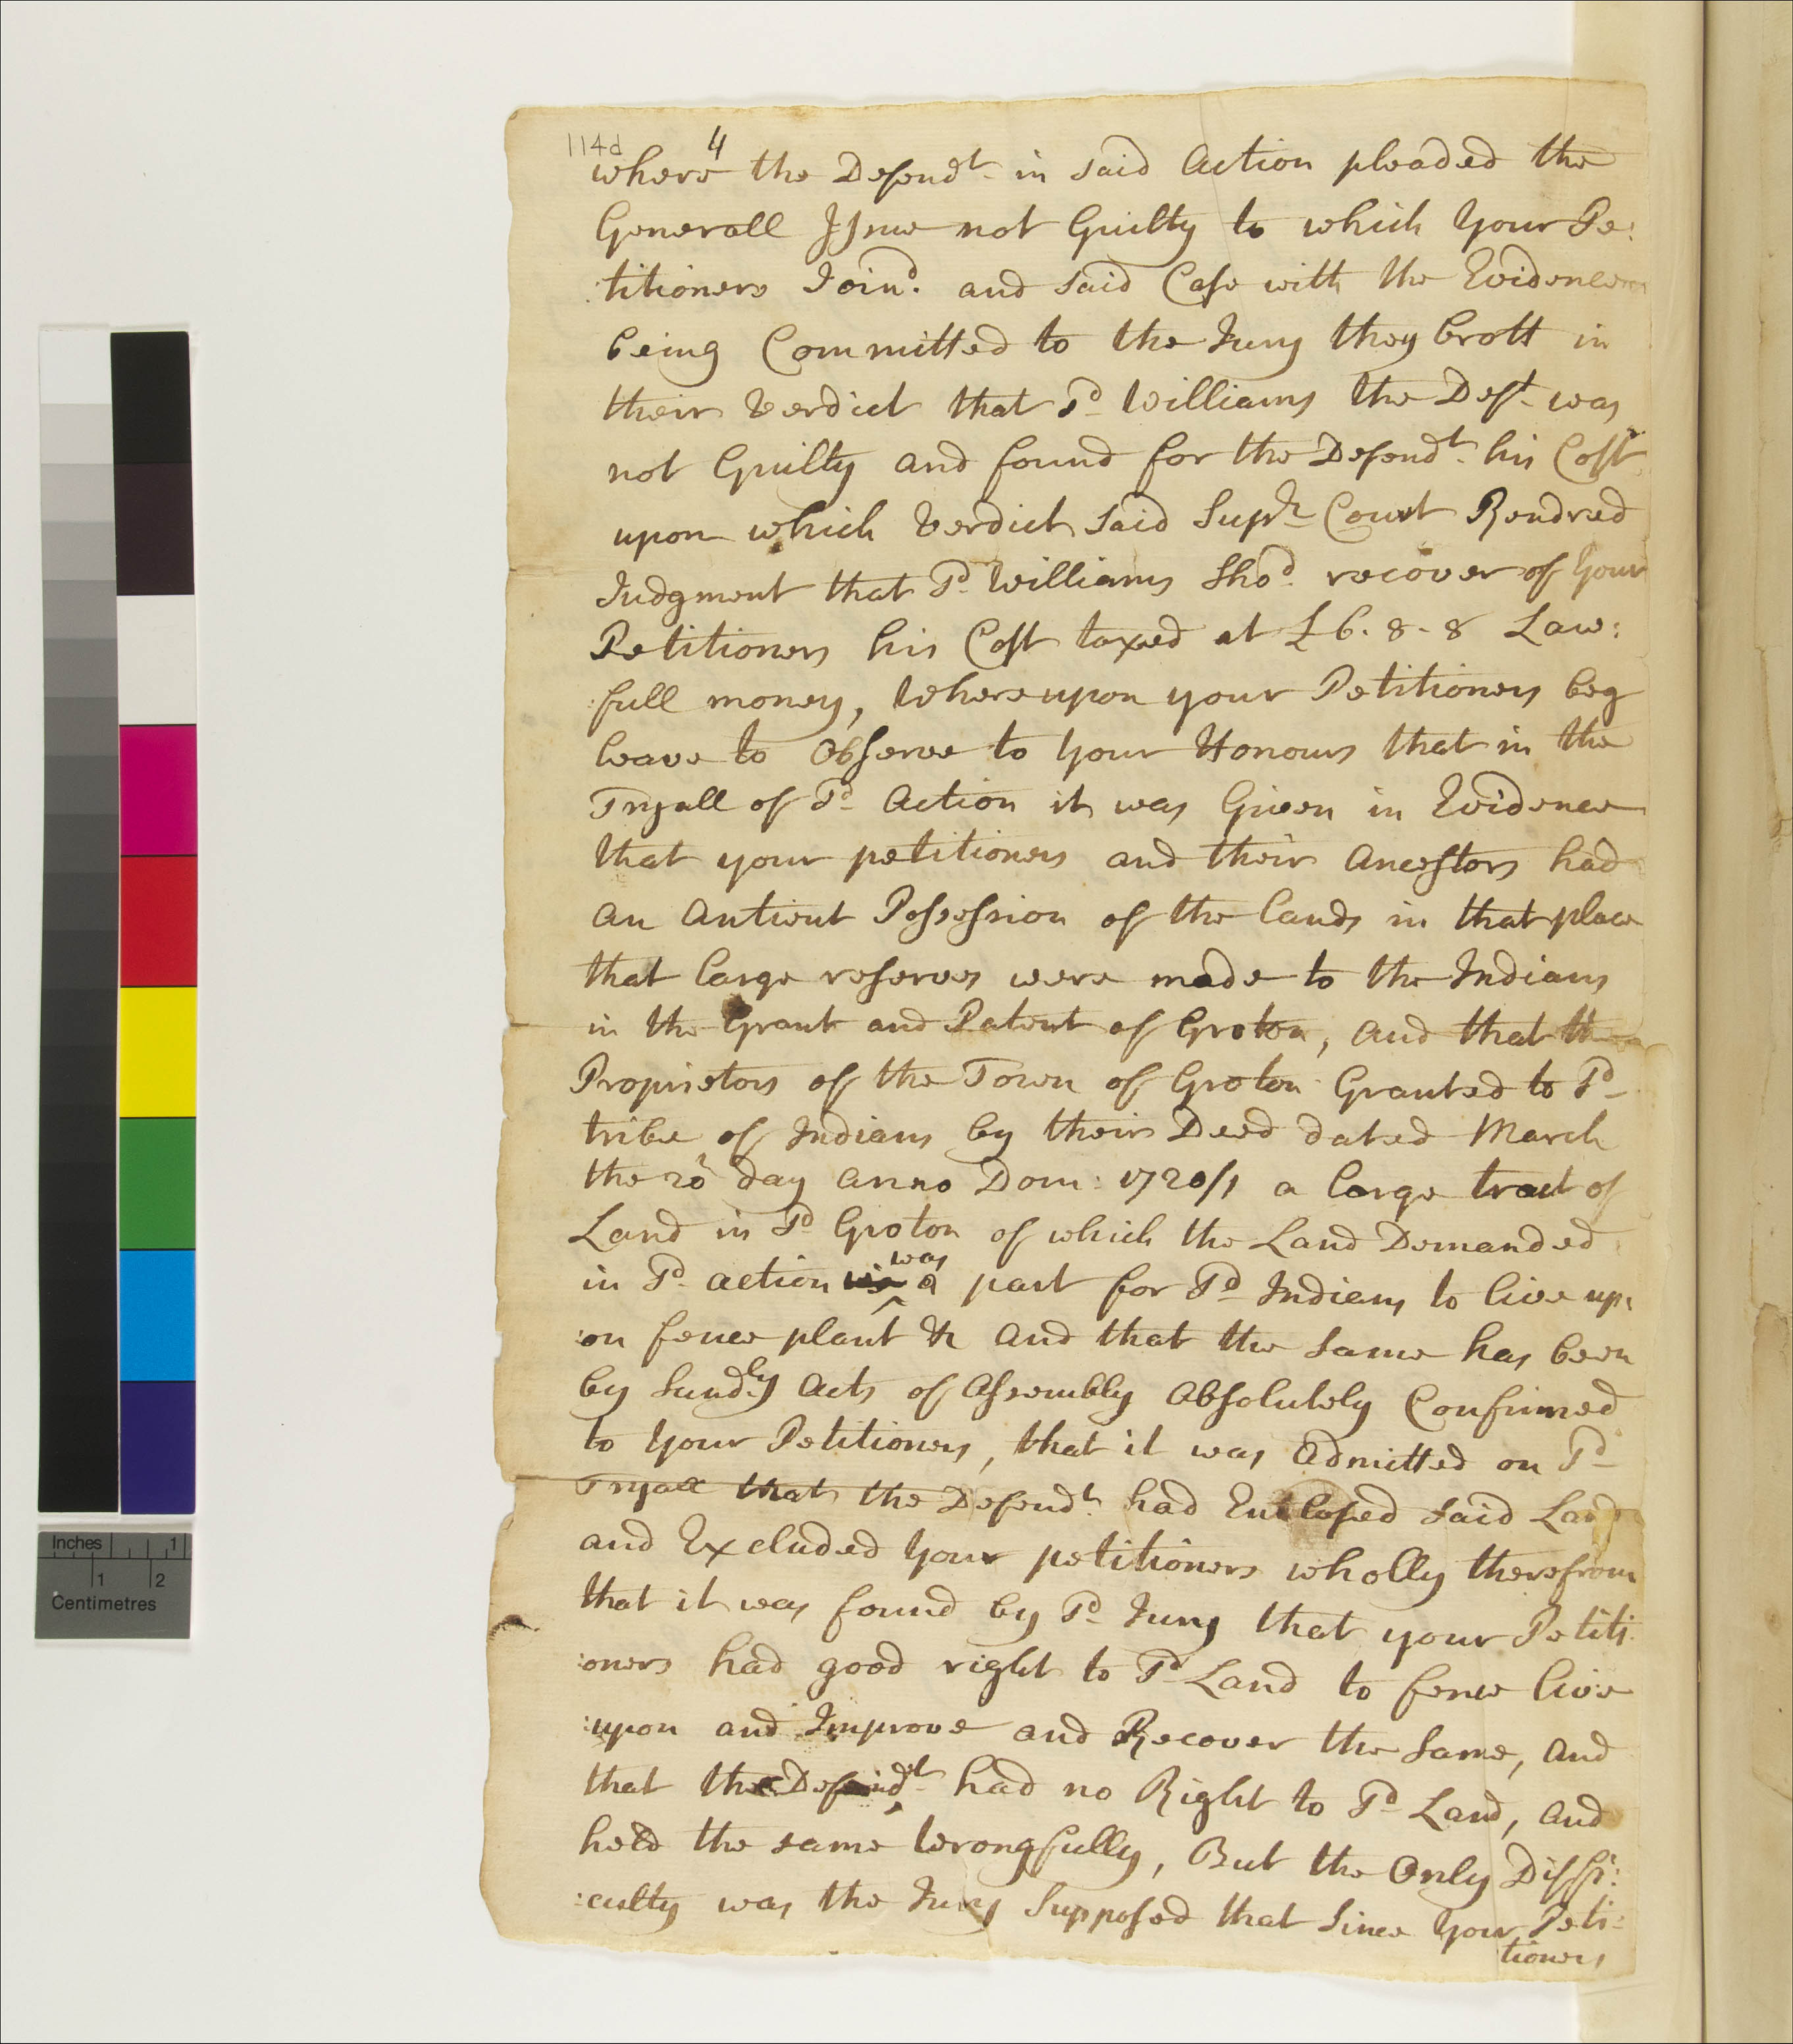 114d 4
where the Defendt. in said Action pleaded the
Generall Issue not Guilty to which Your Pe:
:titioners Joind. and said Case with the Evidences
being Committed to the Jury they brott in
their Verdict that sd Williams the Deft. was
not Guilty and found for the Defendt. his Cost
upon which Verdict said Supr. Court Rendred
Judgment that sd Williams Shod. recover of Your
Petitioners his Cost taxed at £6.8-8 Law:
:full money, Whereupon your Petitioners beg
leave to Observe to Your Honours that in the
Tryall of sd Action it was Given in Evidence
that your petitioners and their Ancestors had
an Antient Possession of the lands in that place
that large reserves were made to the Indians
in the Grant and Patent of Groton, and that the
Proprietors of the Town of Groton Granted to sd
tribe of Indians by their Deed dated March
the 20 day anno Dom: 1720/1 a large tract of
Land in sd Groton of which the Land Demanded
was
in sd action a part for sd Indians to live up:
:on fence plant &c and that the same has been
by Sundry Acts of Assembly Absolutely Confirmed
to Your Petitioners, that it was admitted on sd
Tryall that the Defendt. had Enclosed said Land
and Excluded Your petitioners wholly therefrom
that it was found by sd Jury that your Petiti
:oners had good right to sd Land to fence live
:upon and Improve and Recover the Same, and
that the Defendt had no Right to sd Land, and
held the same Wrongfully, But the Only Diffi:
:culty was the Jury Supposed that Since Your Peti:
tioners